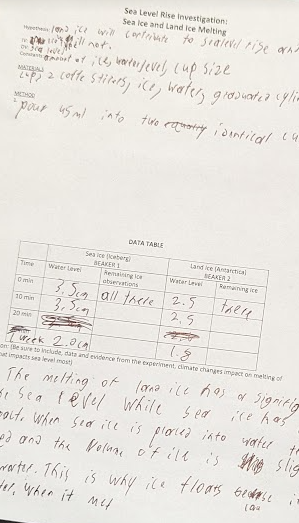 Sea Level Rise Investigation:
Sea Ice and Land Ice Melting
Hypothesis: land ice will contribute to sea level rise and
ice will not.
IV:
DV: sea level
Constants: amount of ice, water level, cup size
MATERIALS
cups 2 coffee stirers, ice, water, graduated cylin
METHOD
pour 45ml into two equally identical cu
DATA TABLE
Sea Ice (Iceberg) Land Ice (Antarctica)
BEAKER 1 BEAKER 2
Time Water Level Remaining ice observations Water Level Remaining ice
0 min 3.5cm all there 2.5 there
10 min 3.5cm 2.5
20 min
week 2.0cm 1.8
on: (Be sure to include, data and evidence from the experiment, climate changes impact on melting of
hat impacts sea level most)
The melting of land ice has a signific
sea level while sea ice has
When sea ice is placed into water
ed and the of ice is slig
water. This is why ice floats because
when it